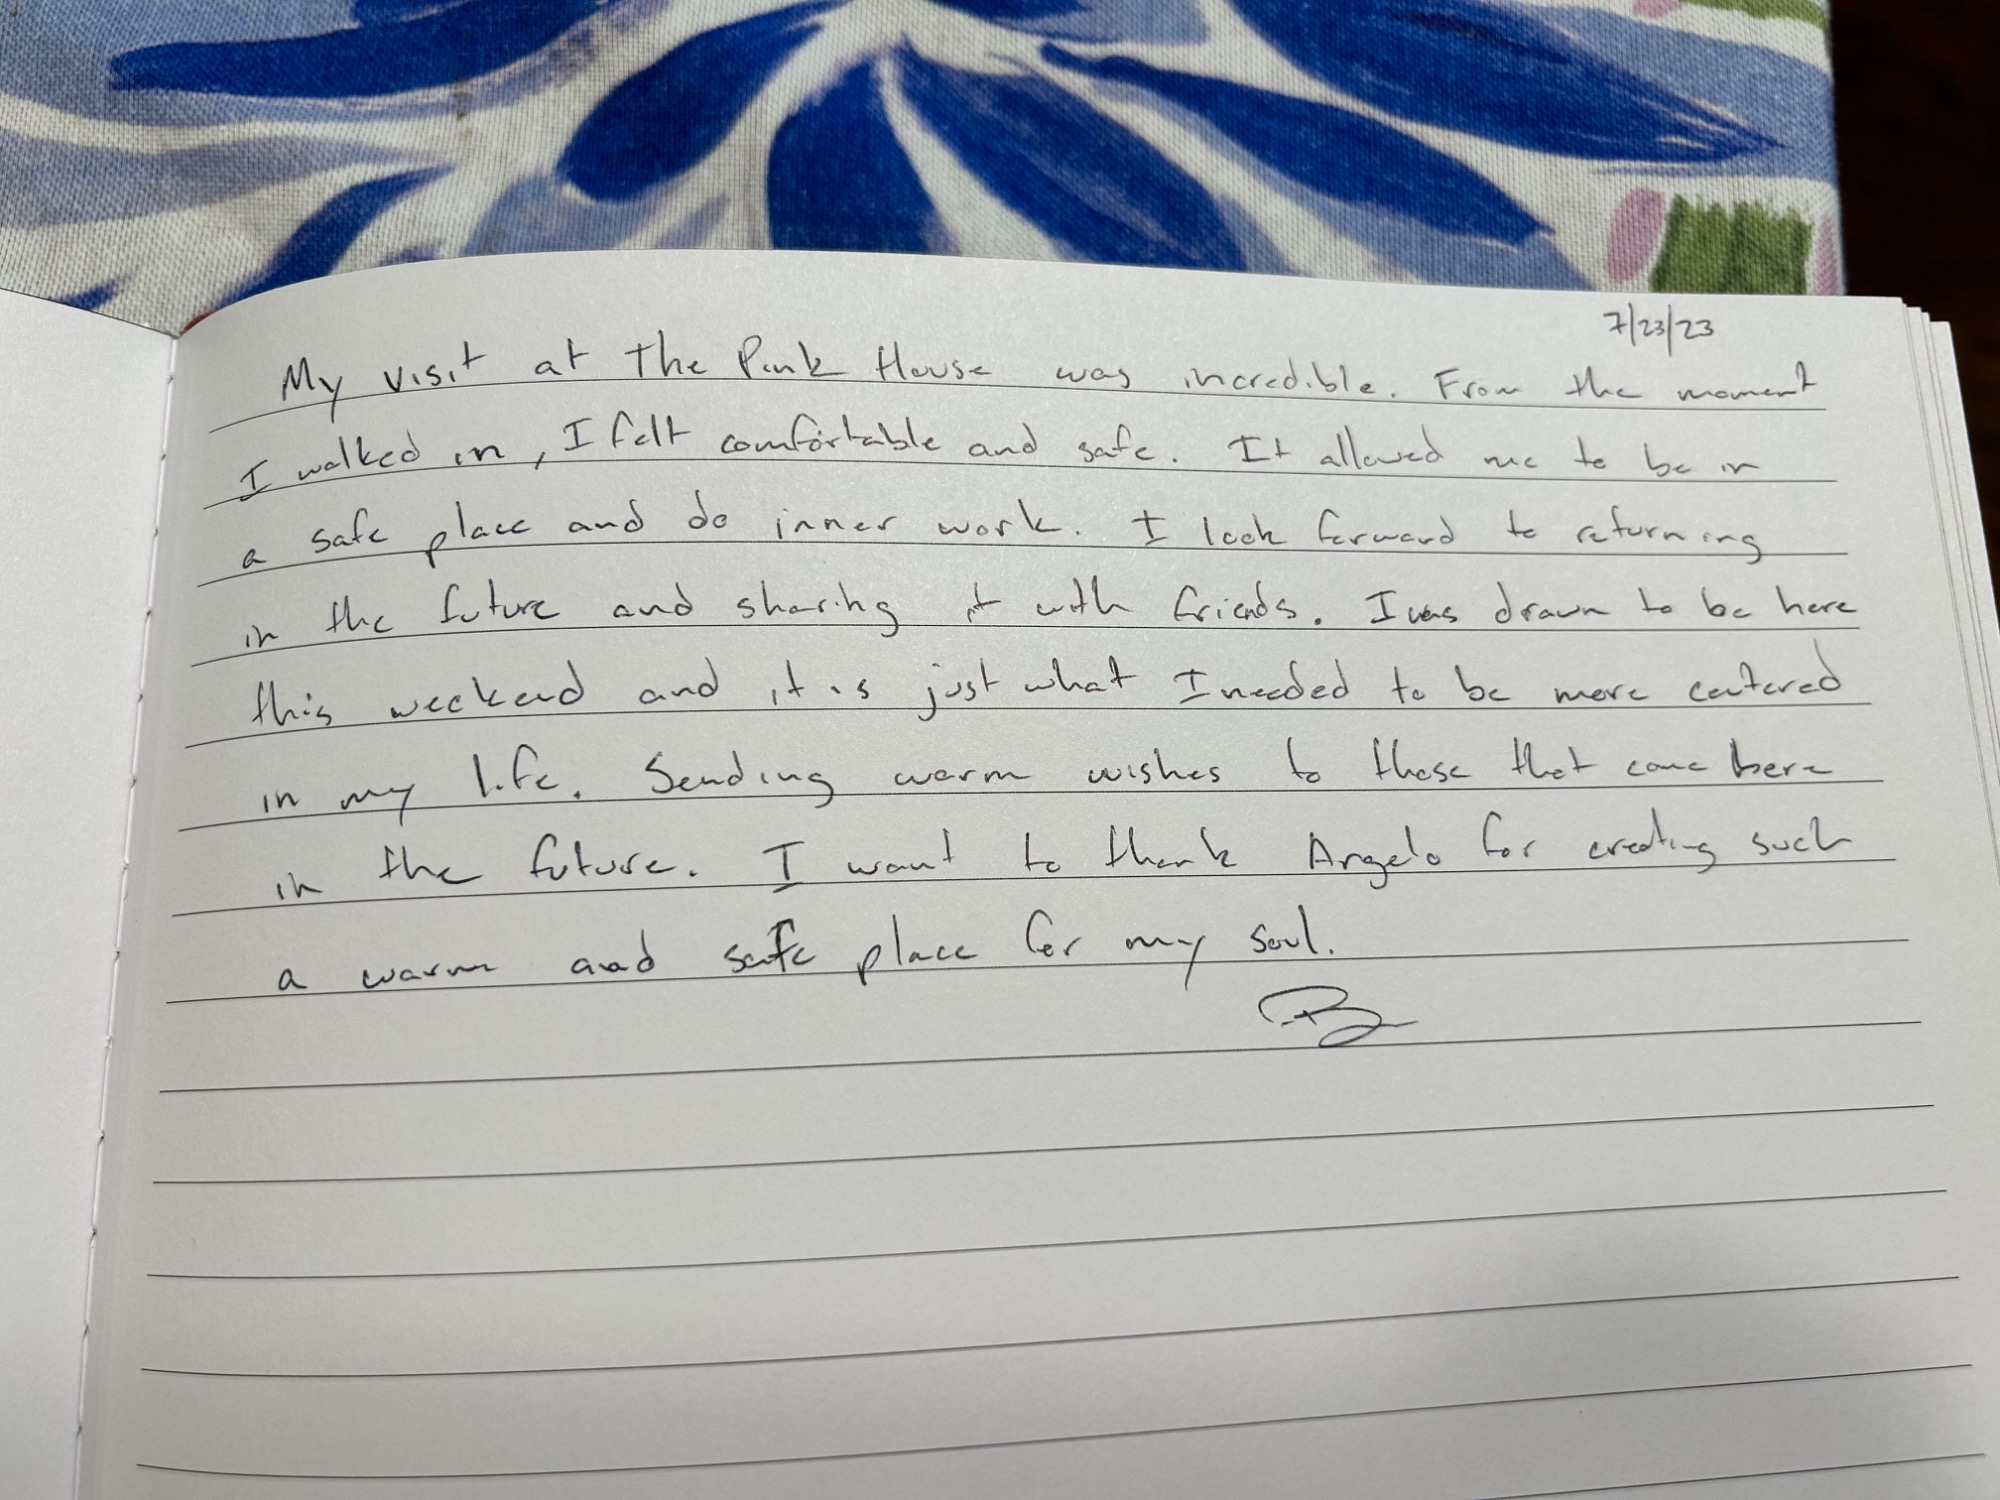 7/23/23
My visit at the Pink House was incredible. From the moment
I walked in, I felt comfortable and safe. It allowed me to be in
a safe place and do inner work. I look forward to returning
in the future and sharing it with friends. I was drawn to be here
this weekend and it is just what I needed to be more centered
in my life. Sending warm wishes to those that come here
in the future. I want to thank Angelo for creating such
a warm and safe place for my soul.